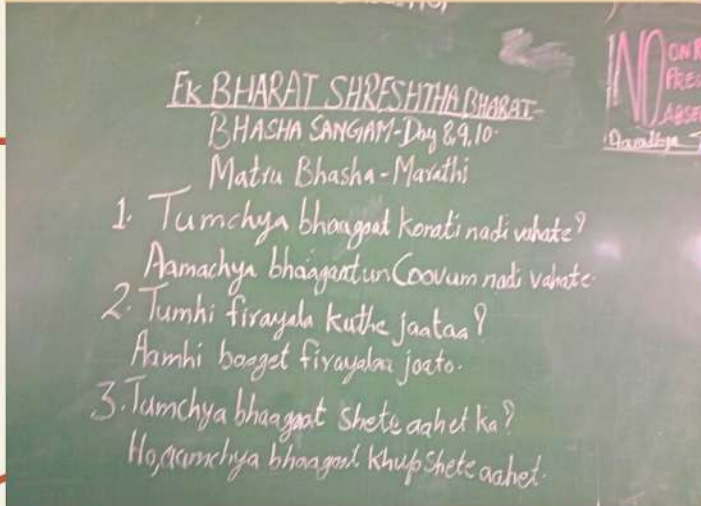 EK BHARAT SHRESHTHA BHARAT-
BHASHA SANGAM-Day 8,9,10-
Matru Bhasha-Marathi
1. Tumchya bhaagaat Korati nadi vahate?
Aamachya bhaagaatun Coovum nadi vahate.
2. Tumhi firayala kuthe jaataa?
Aamhi baaget firayalaa jaato.
3. Tumchya bhaagaat shete aahet ka?
Ho, aamchya bhaagaat khup shete aahet.
NO
ON R
PRES
ABSE